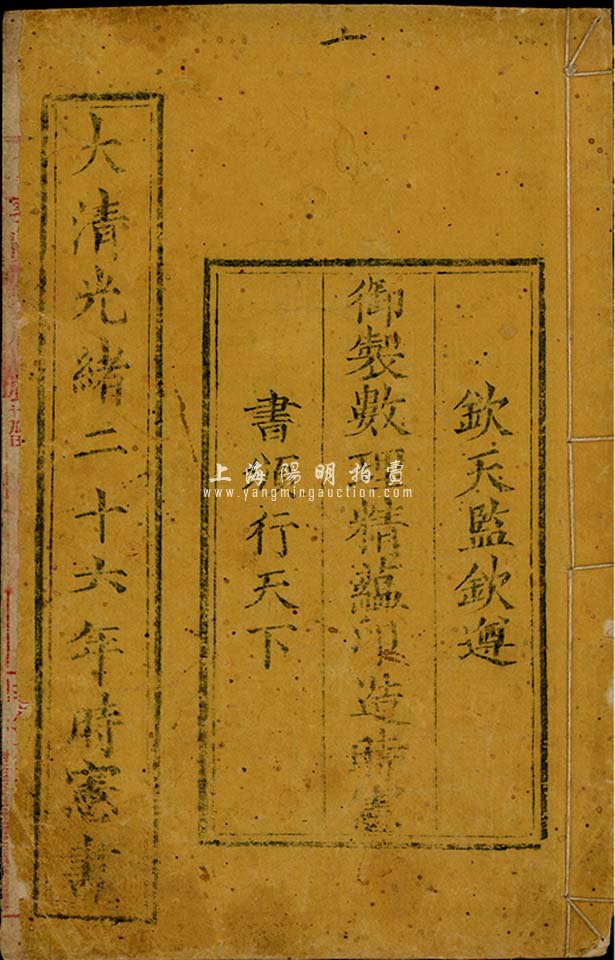 欽天監欽遵
御製數理精蘊印造時憲
書頒行天下
大清光緒二十六年時憲書
上海陽明拍賣
www.yangmingauction.com